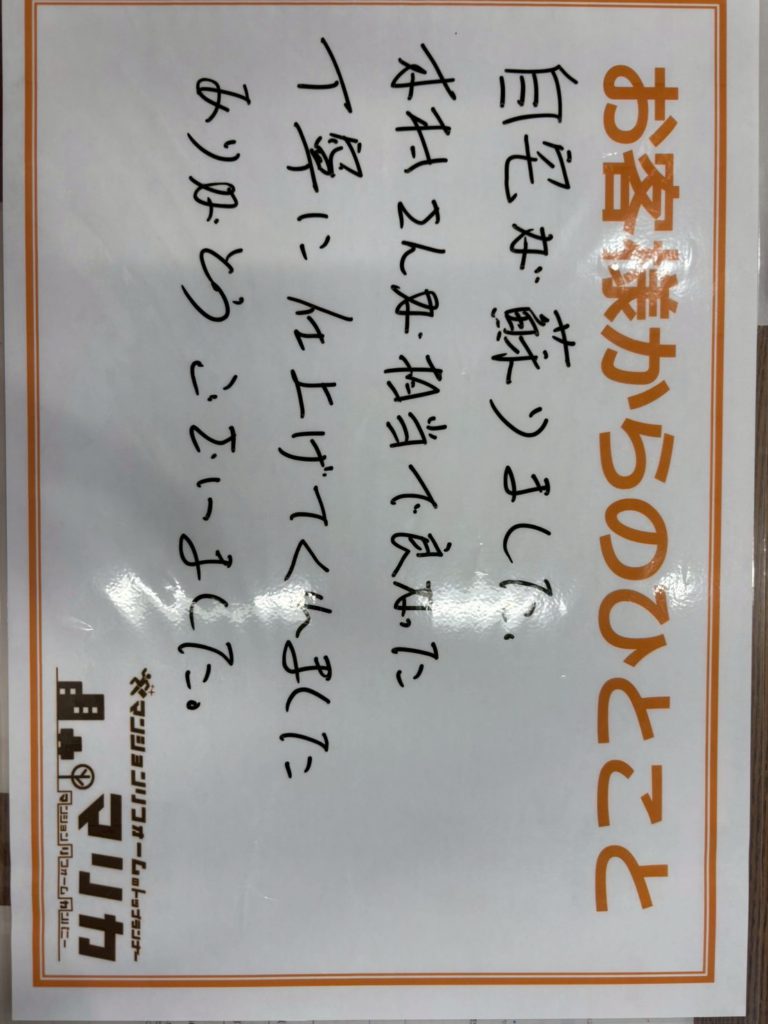 お客様からのひとこと
自宅が蘇りました。
木村さんが担当で良かった
丁寧に仕上げてくれました
ありがとうございました。
マンションリフォームのトップランナー
マリカ
マンションリフォームカンパニー